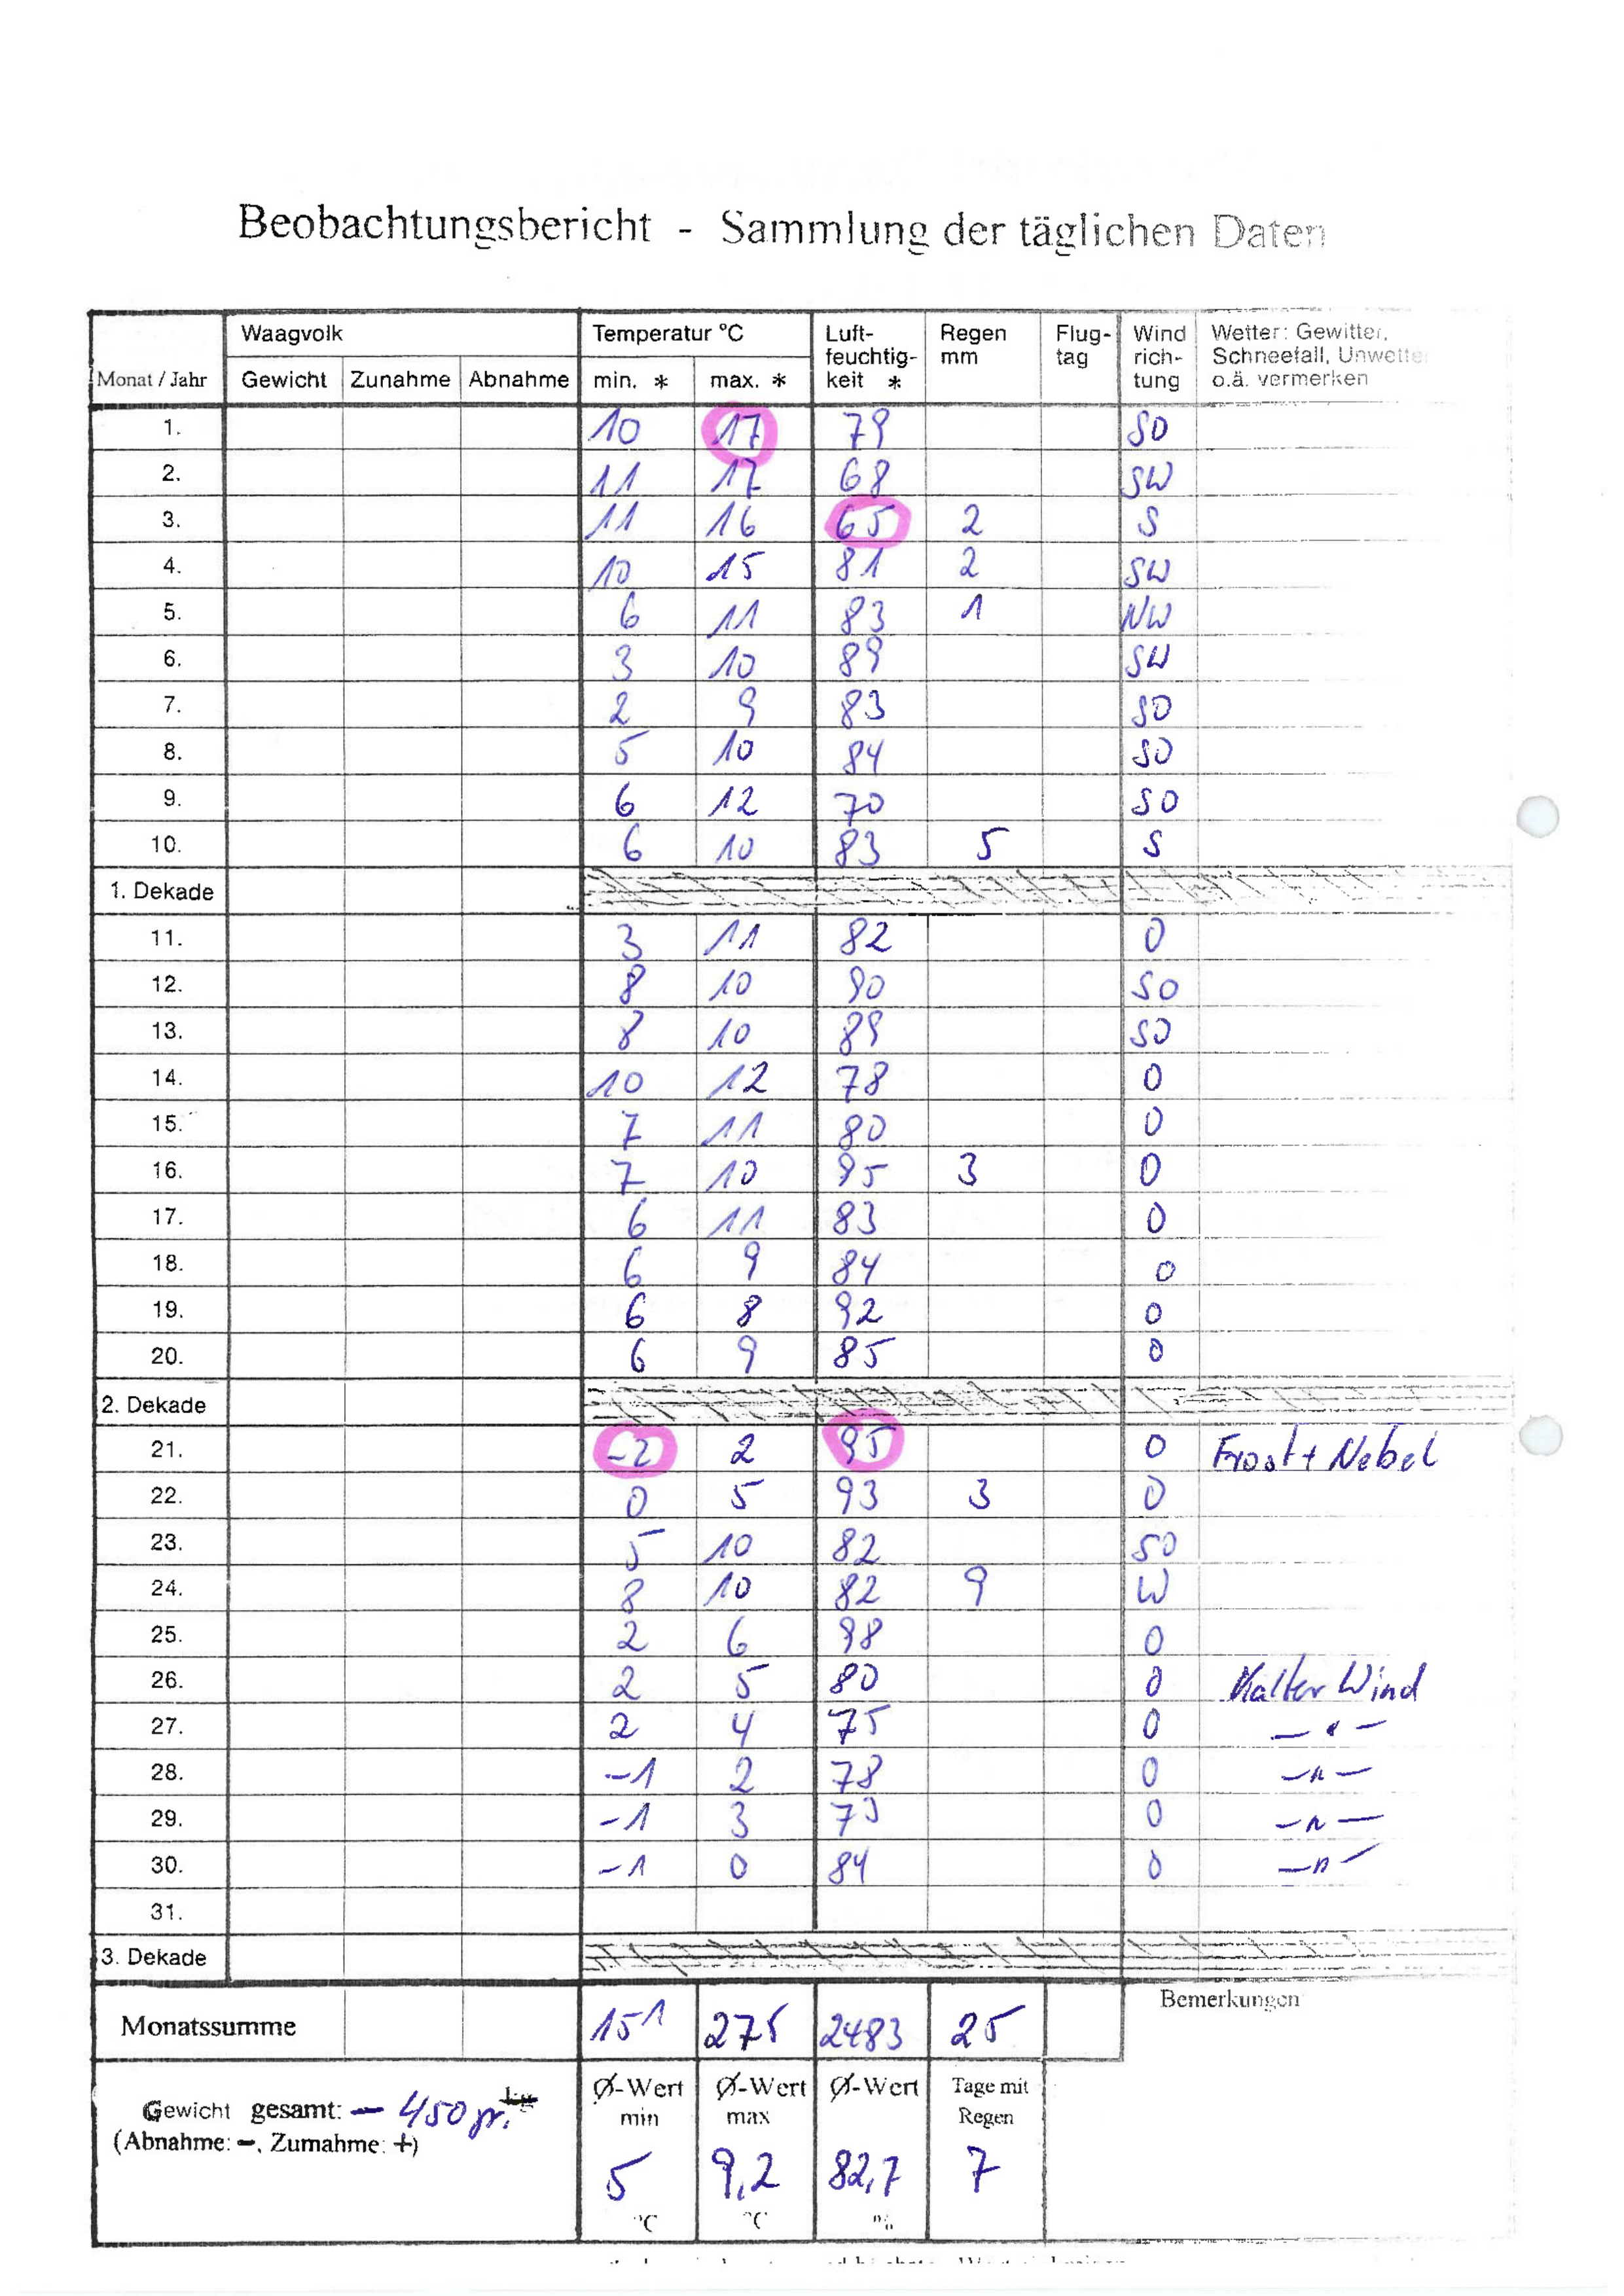 Beobachtungsbericht - Sammlung der täglichen Daten
Monat / Jahr Waagvolk Temperatur °C Luft-feuchtig-keit * Regen mm Flug-tag Wind rich-tung Wetter: Gewitter, Schneefall, Unwetter o.ä. vermerken
Gewicht Zunahme Abnahme min. * max. *
1. 10 17 79 SO
2. 11 17 68 SW
3. 11 16 65 2 S
4. 10 15 81 2 SW
5. 6 11 83 1 NW
6. 3 10 89 SW
7. 2 9 83 SO
8. 5 10 84 SO
9. 6 12 70 SO
10. 6 10 83 5 S
1. Dekade
11. 3 11 82 O
12. 8 10 90 SO
13. 8 10 89 SO
14. 10 12 78 O
15. 7 11 80 O
16. 7 10 85 3 O
17. 6 11 83 O
18. 6 9 84 O
19. 6 8 92 O
20. 6 9 85 O
2. Dekade
21. -2 2 95 O Frost + Nebel
22. 0 5 93 3 O
23. 5 10 82 SO
24. 8 10 82 9 W
25. 2 6 88 O
26. 2 5 80 O Kalter Wind
27. 2 4 75 O — " —
28. -1 2 78 O — " —
29. -1 3 79 O — " —
30. -1 0 84 O — " —
31.
3. Dekade
Monatssumme 151 275 2483 25
Bemerkungen
Gewicht gesamt: - 450 gr.
(Abnahme: -, Zumahme: +)
Ø-Wert min Ø-Wert max Ø-Wert Tage mit Regen
5 9,2 82,7 7
°C °C %